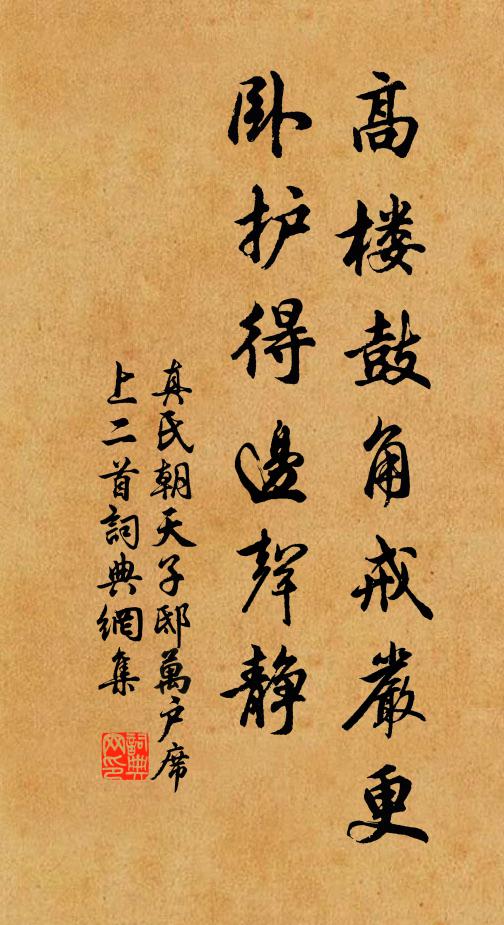 高楼鼓角戒嚴更
卧护得邊聲静
真氏朝天子邸萬户席
上二首詞典網集
詞典
网印